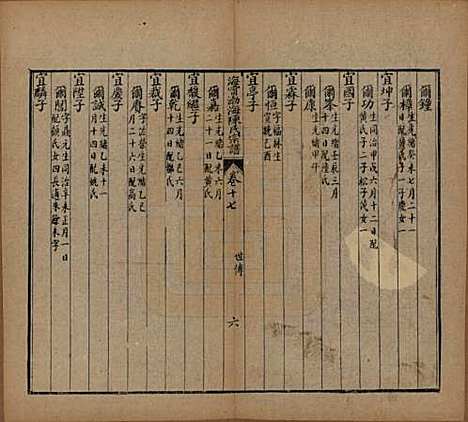 爾鍾
爾樟生光緒癸未七月二十一日配陸氏子一子慶女一
宜坤子
爾功生同治甲戌六月十二日配黃氏子二松子女一
宜國子
爾峯生光緒壬辰三月十四日配陸氏
爾康生光緒甲午
宜霖子
爾恒字福林生宣統己酉
宜亭子
海寧渤海陳氏宗譜 卷十七 世傳 六
爾嘉生光緒乙未六月二十一日配黃氏
宜駿繼子
爾乾生光緒乙巳六月十四日配張氏
宜栽子
爾壽字榮生光緒乙巳月二十六日配高氏
宜慶子
爾誠生光緒乙巳月十四日配姚氏
宜陞子
爾閏字鼎元生同治辛未正月一日配顧氏女四長適朱次字
宜麟子